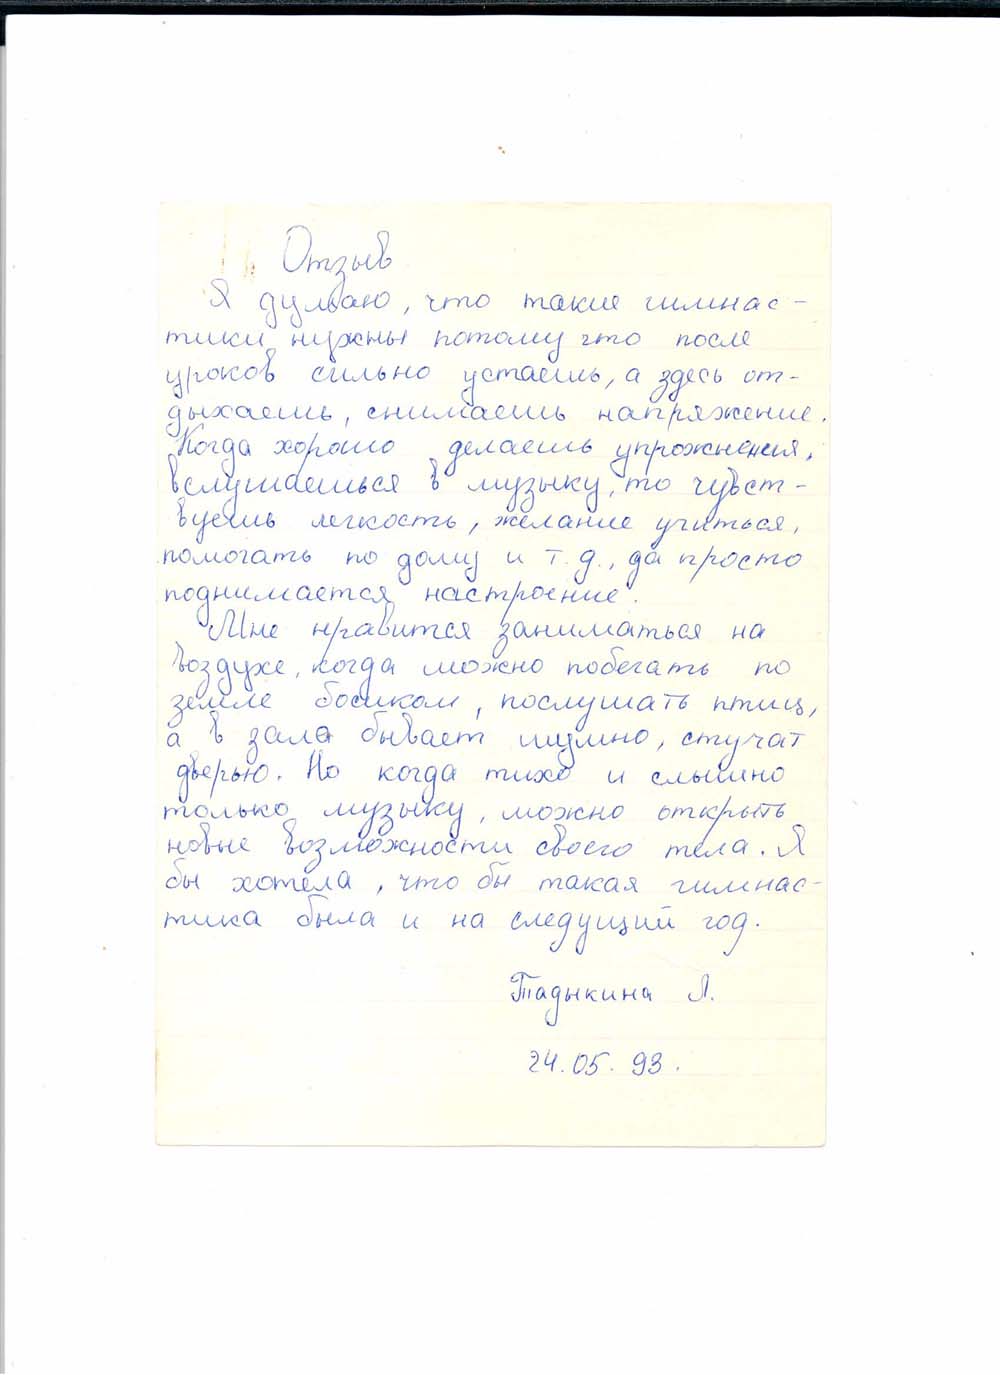 Отзыв
Я думаю, что такие гимнас-
тики нужны потому что после
уроков сильно устаешь, а здесь от-
дыхаешь, снимаешь напряжение.
Когда хорошо делаешь упрожнения,
вслушаешься в музыку, то чувст-
вуешь легкость, желание учиться,
помогать по дому и т.д., да просто
поднимается настроение.
Мне нравится заниматься на
воздухе, когда можно побегать по
земле босиком, послушать птиц,
а в зале бывает шумно, стучат
дверью. Но когда тихо и слышно
только музыку, можно открыть
новые возможности своего тела. Я
бы хотела, что бы такая гимнас-
тика была и на следущий год.
Тадыкина Л.
24.05.93.